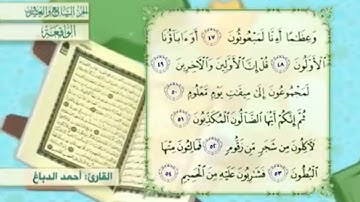 الجزء السابع والعشرون
الواقعة
وَعِظَٰمًا أَءِنَّا لَمَبْعُوثُونَ ٤٧ أَوَءَابَآؤُنَا
ٱلْأَوَّلُونَ ٤٨ قُلْ إِنَّ ٱلْأَوَّلِينَ وَٱلْأَخِرِينَ ٤٩
لَمَجْمُوعُونَ إِلَىٰ مِيقَٰتِ يَوْمٍ مَّعْلُومٍ ٥٠
ثُمَّ إِنَّكُمْ أَيُّهَا ٱلضَّآلُّونَ ٱلْمُكَذِّبُونَ ٥١
لَأَكِلُونَ مِن شَجَرٍ مِّن زَقُّومٍ ٥٢ فَمَالِـُٔونَ مِنْهَا
ٱلْبُطُونَ ٥٣ فَشَٰرِبُونَ عَلَيْهِ مِنَ ٱلْحَمِيمِ ٥٤
القارئ: أحمد الدباغ